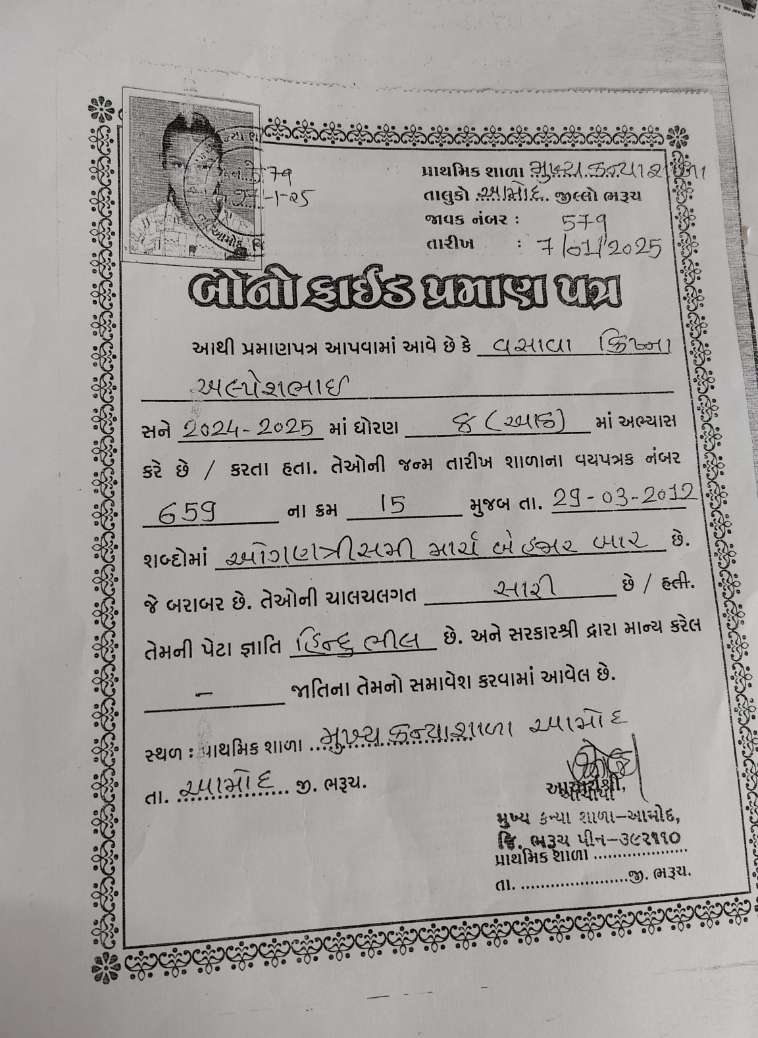 પ્રાથમિક શાળા મુખ્ય કન્યાશાળા
તાલુકો આમોદ. જીલ્લો ભરૂચ
જાવક નંબર : 579
તારીખ : 7/01/2025
579
બોનોફાઈડ પ્રમાણ પત્ર
આથી પ્રમાણપત્ર આપવામાં આવે છે કે વસાવા ક્રિષ્ના
અલ્પેશભાઈ
સને 2024-2025 માં ધોરણ ૮ (આઠ) માં અભ્યાસ
કરે છે / કરતા હતા. તેઓની જન્મ તારીખ શાળાના વયપત્રક નંબર
659 ના ક્રમ 15 મુજબ તા. 29-03-2012
શબ્દોમાં ઓગણત્રીસમી માર્ચ બે હજાર બાર છે.
જે બરાબર છે. તેઓની ચાલચલગત સારી છે / હતી.
તેમની પેટા જ્ઞાતિ હિન્દુ ભીલ છે. અને સરકારશ્રી દ્વારા માન્ય કરેલ
– જાતિના તેમનો સમાવેશ કરવામાં આવેલ છે.
સ્થળ : પ્રાથમિક શાળા મુખ્ય કન્યાશાળા આમોદ
તા. આમોદ જી. ભરૂચ.
મુખ્ય કન્યા શાળા-આમોદ,
જિ. ભરૂચ પીન-૩૯૨૧૧૦
પ્રાથમિક શાળા ..................
તા. .....................જી. ભરૂચ.